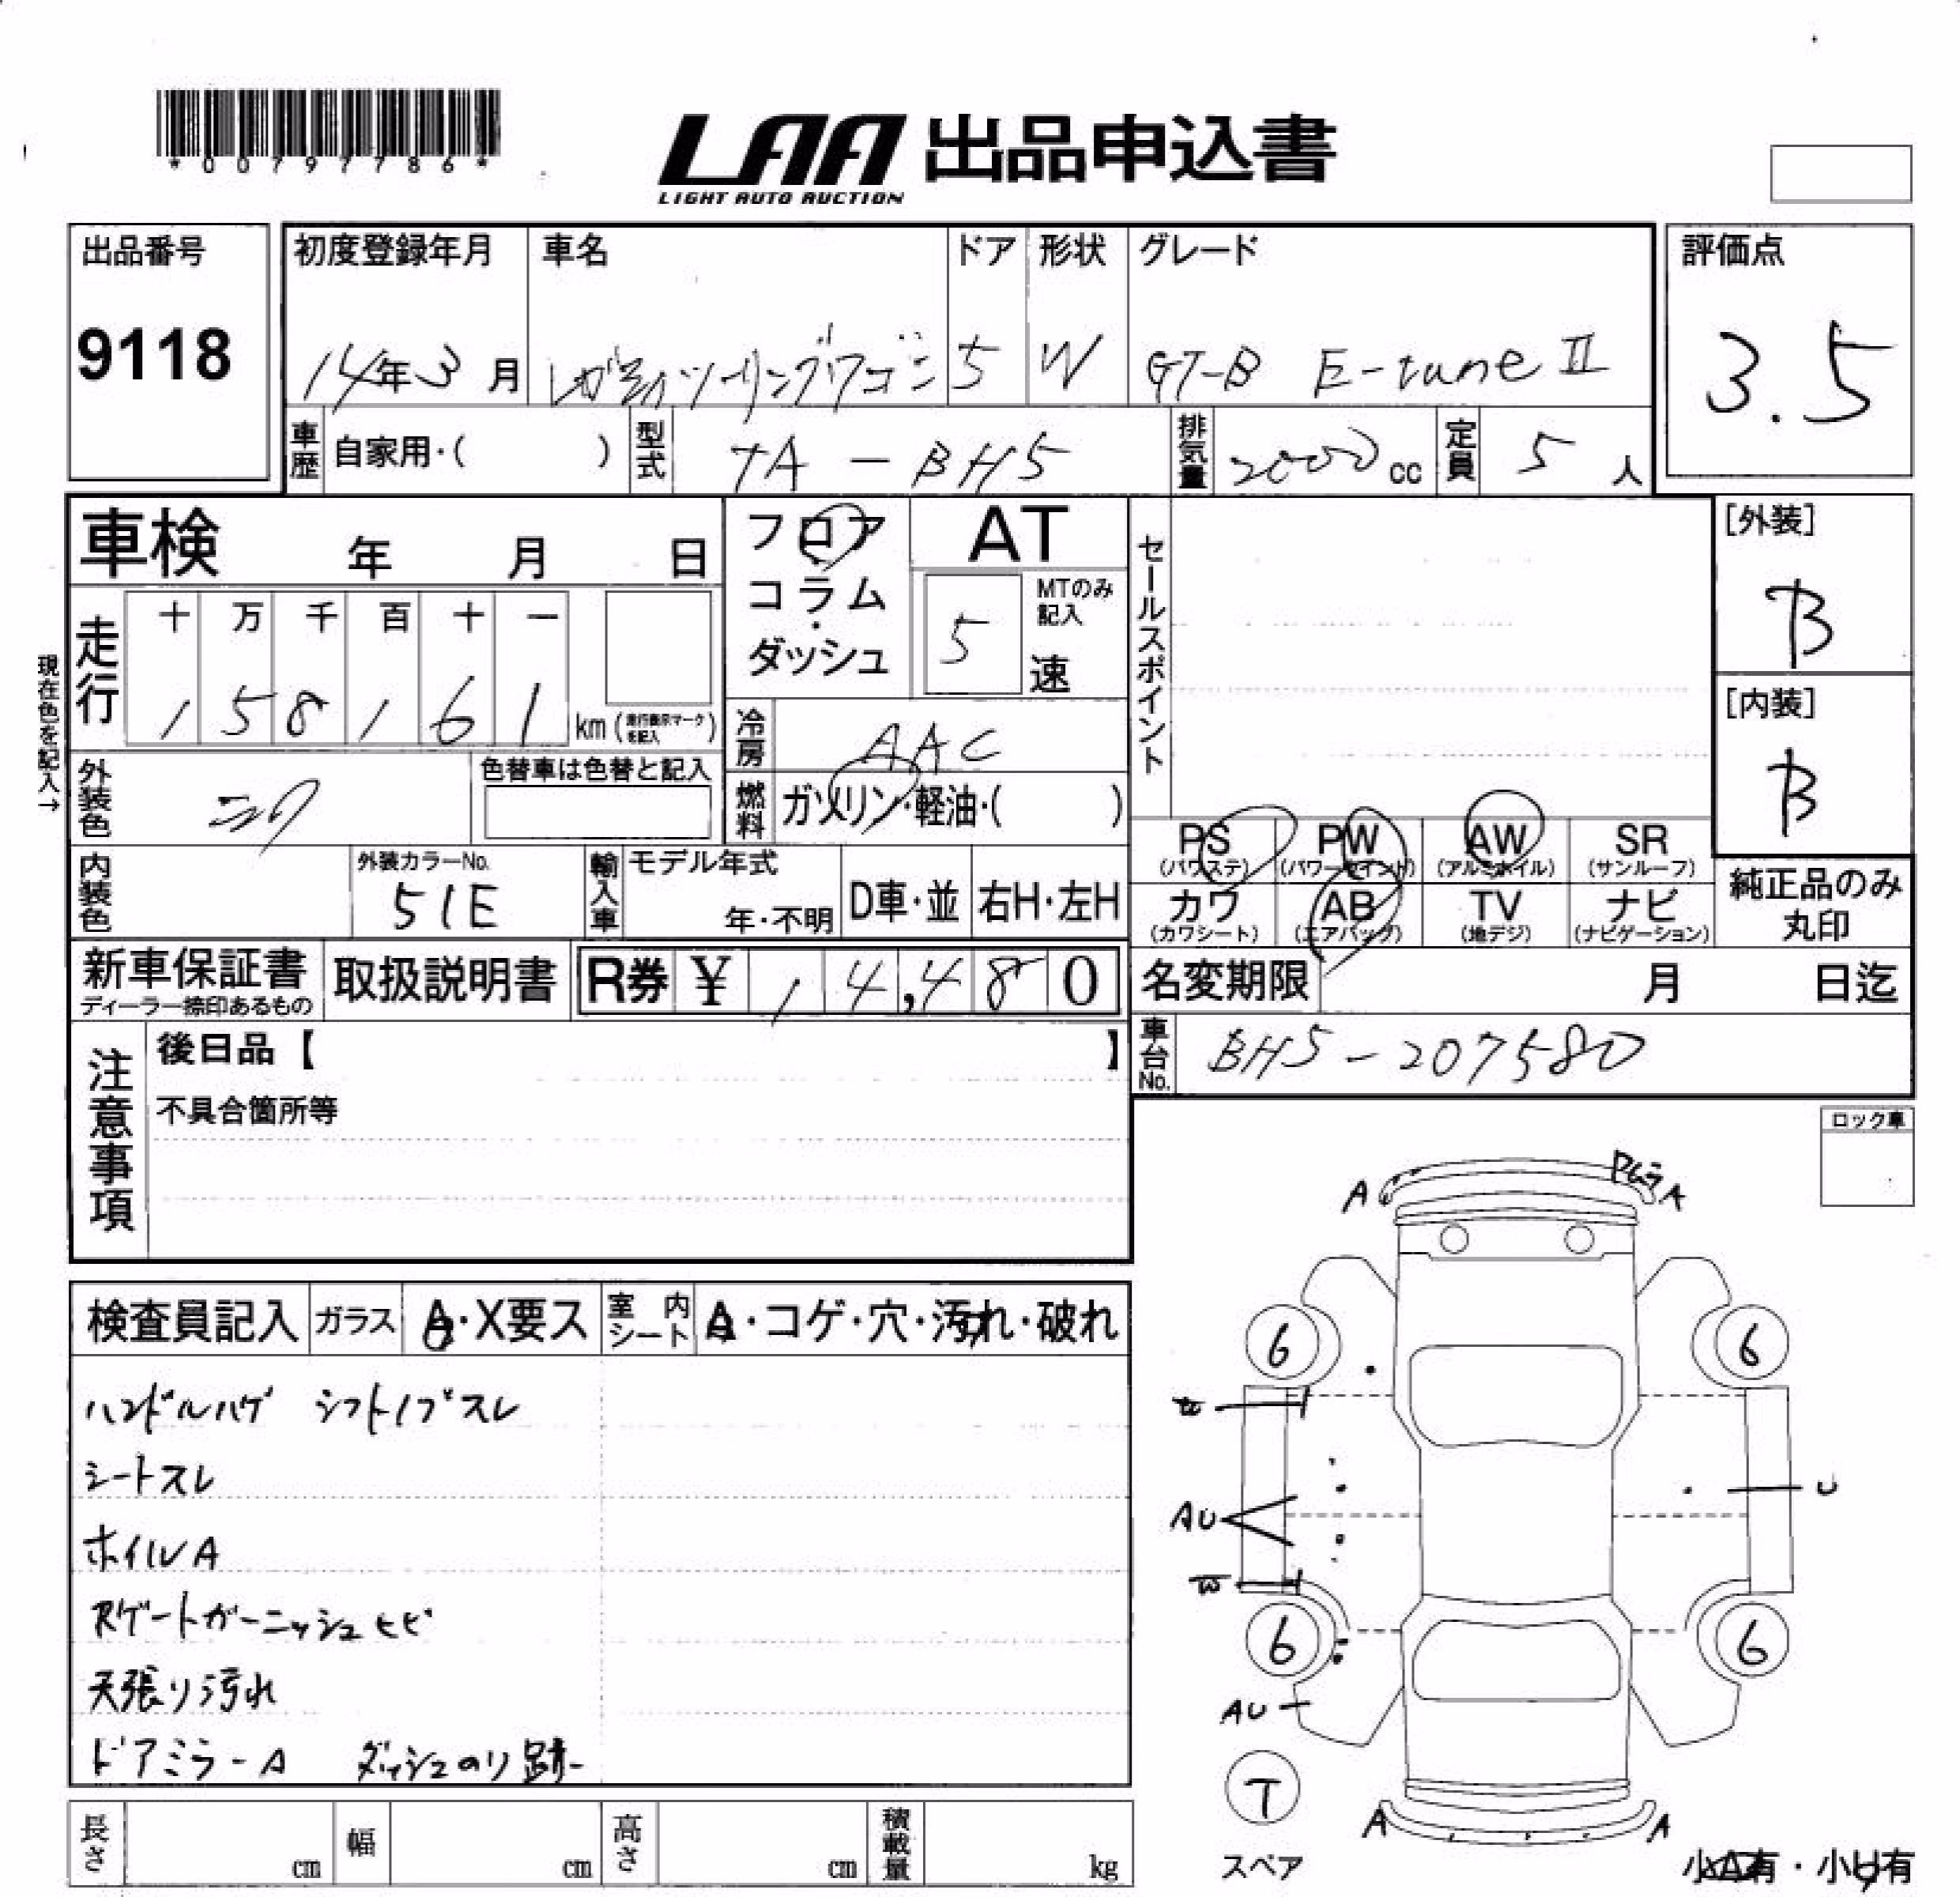 *00797786*
LAA 出品申込書
LIGHT AUTO AUCTION
出品番号
9118
初度登録年月 車名 ドア 形状 グレード
14年3月 レガシィツーリングワゴン 5 W GT-B E-tune II
評価点
3.5
車歴 自家用・( ) 型式 TA-BH5 排気量 2000cc 定員 5人
車検 年 月 日
フロア
コラム
ダッシュ
AT
5速
MTのみ記入
セールスポイント
[外装]
B
[内装]
B
現在色を記入→
走行 十 万 千 百 十 一
1 5 8 1 6 1 km (走行表示マークを記入)
冷房 AAC
外装色
色替車は色替と記入
燃料 ガソリン・軽油・( )
PS PW AW SR
(パワステ) (パワーウインド) (アルミホイル) (サンルーフ)
カワ AB TV ナビ
(カワシート) (エアバッグ) (地デジ) (ナビゲーション)
純正品のみ
丸印
内装色 外装カラーNo.
51E
輸入車 モデル年式
年・不明 D車・並 右H・左H
新車保証書 取扱説明書 R券 ¥ 14,480
ディーラー捺印あるもの
名変期限 月 日迄
車台No. BH5-207580
注意事項
後日品【 】
不具合箇所等
ロック車
検査員記入 ガラス A・X要ス 室内シート A・コゲ・穴・汚れ・破れ
ハンドルハゲ シフトノブスレ
シートスレ
ホイルA
Rゲートガーニッシュヒビ
天張り汚れ
ドアミラーA ダッシュのり跡
A A
6 6
U
AU
6 6
AU
T
スペア
A A
小A有・小U有
長さ cm 幅 cm 高さ cm 積載量 kg